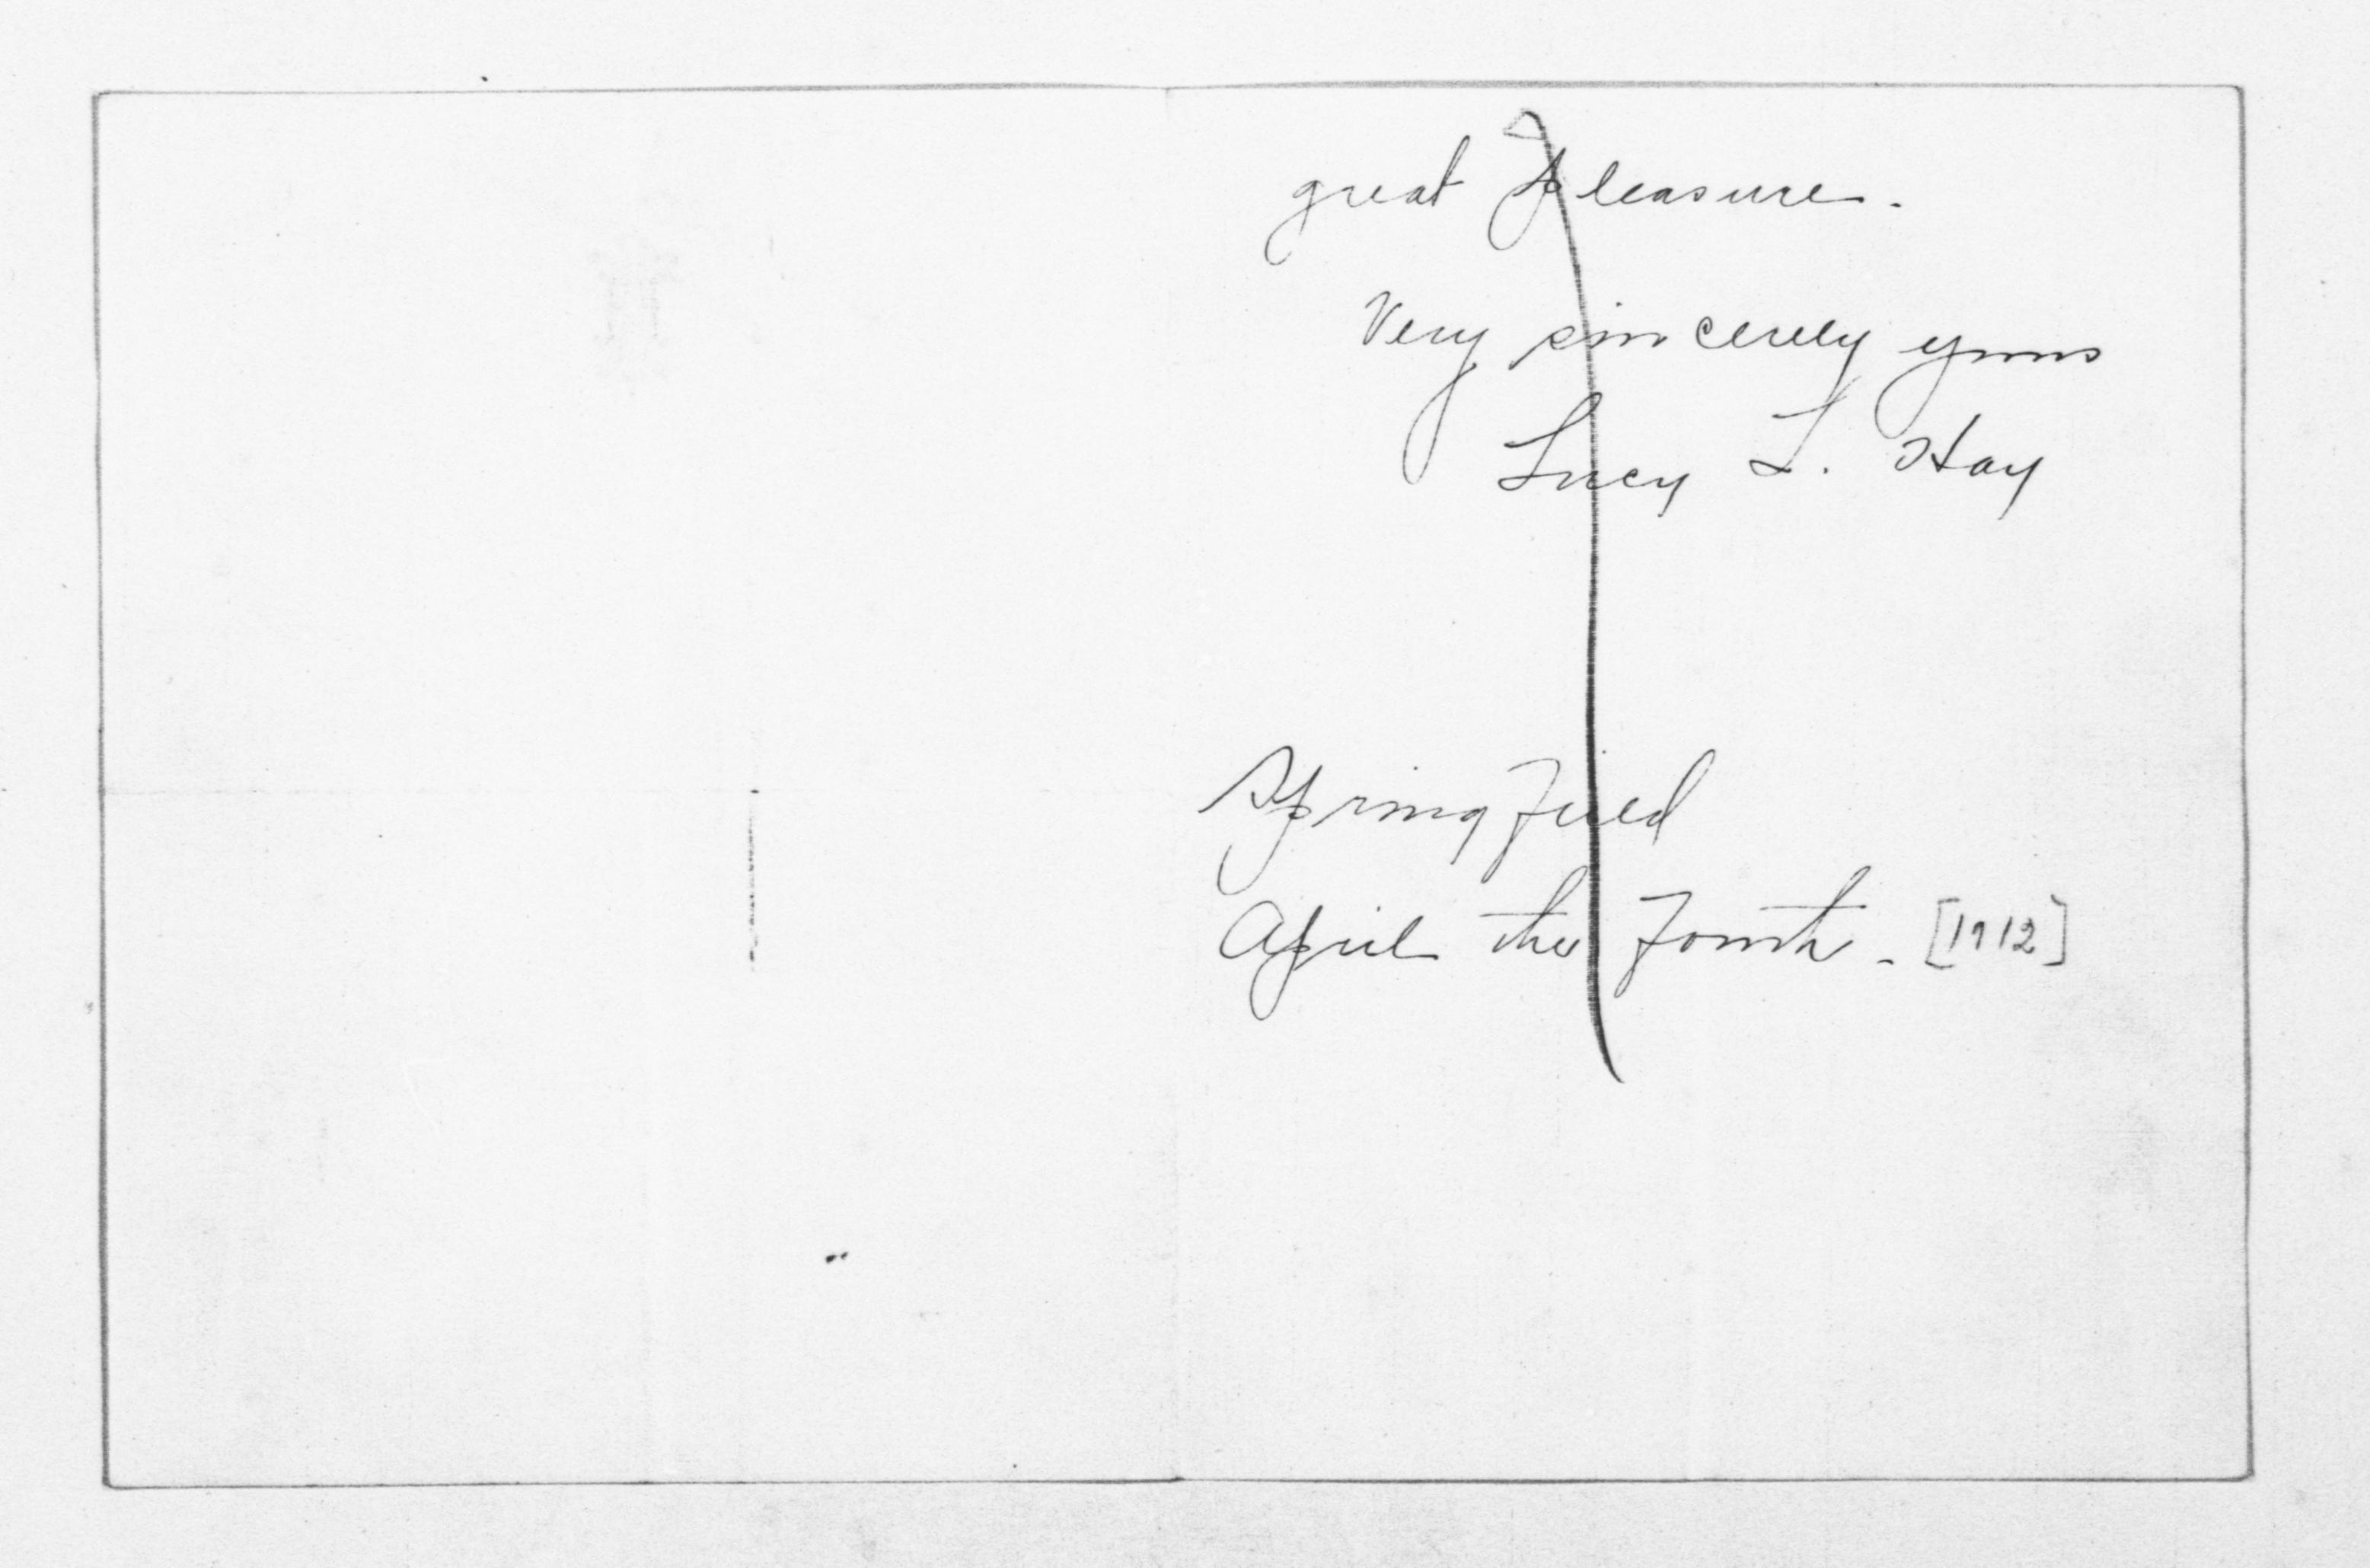 great pleasure.
Very sincerely yours
Lucy L. Hay
Springfield
April the Fourth. [1912]